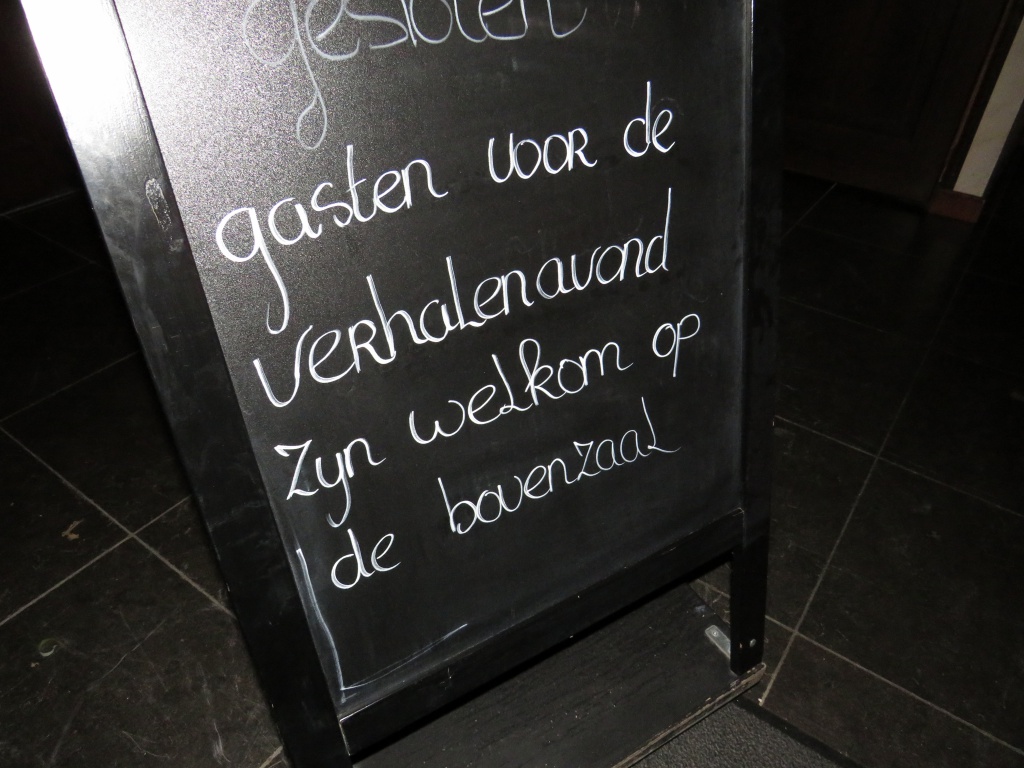 gesloten
gasten voor de
verhalenavond
zyn welkom op
de bovenzaal